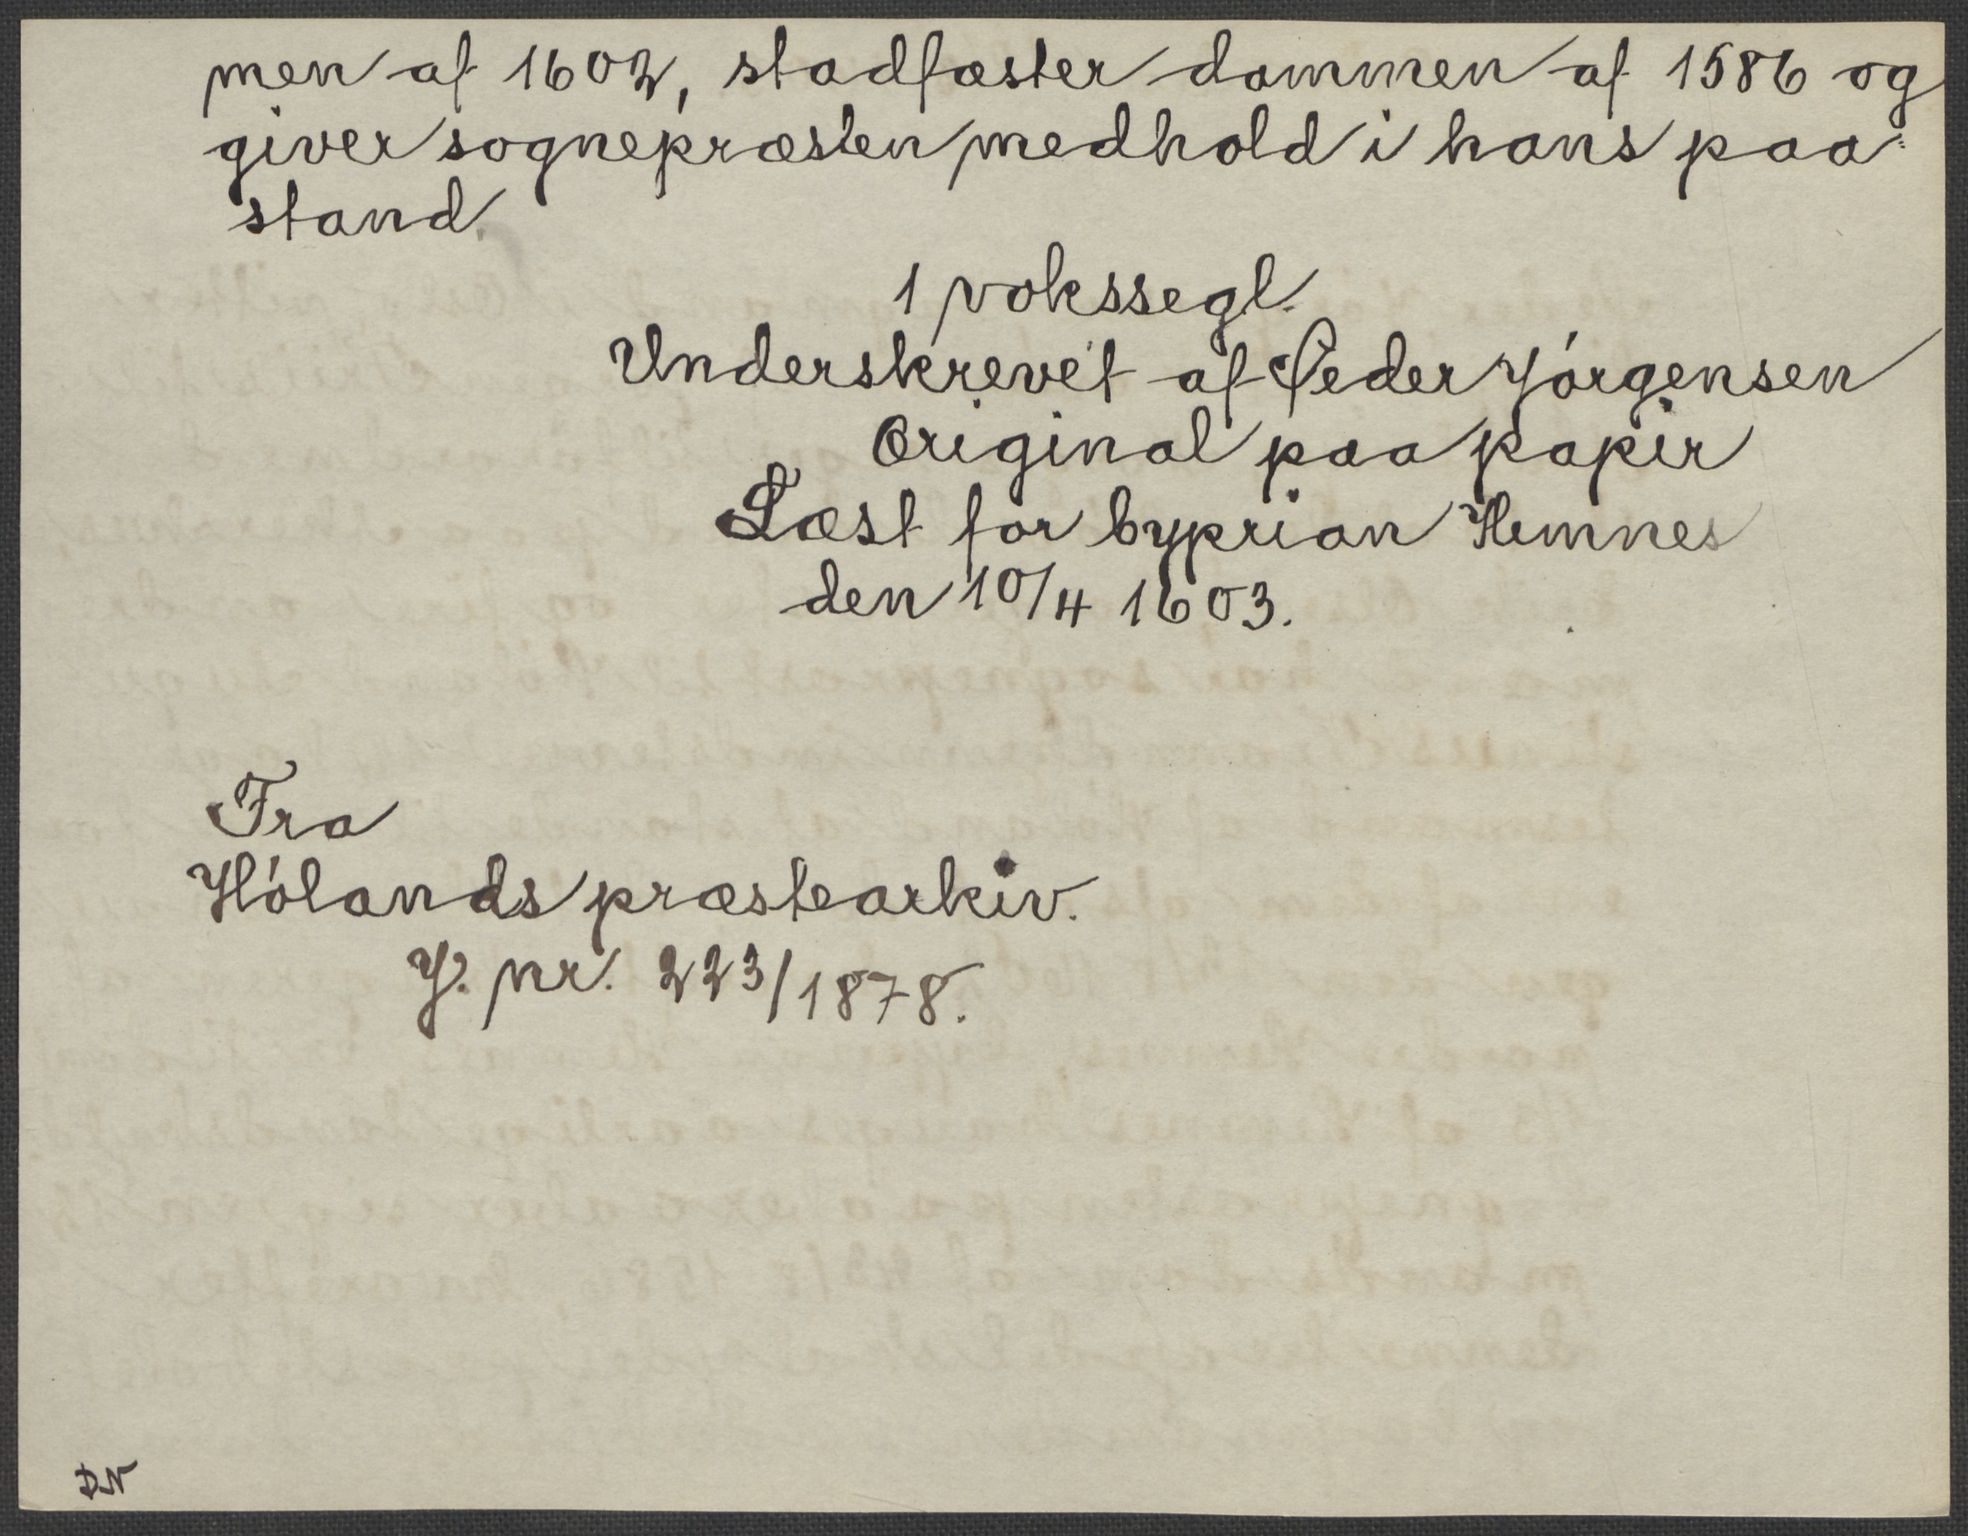 men af 1602, stadfæster dommen af 1586 og
giver sognepræsten medhold i hans paa-
stand.
1 vokssegl.
Underskrevet af Peder Jörgensen
Original paa papir
Læst for Cyprian Hemnes
den 10/4 1603.
Fra
Hölands præstearkiv.
J. nr. 223/1878.
DN